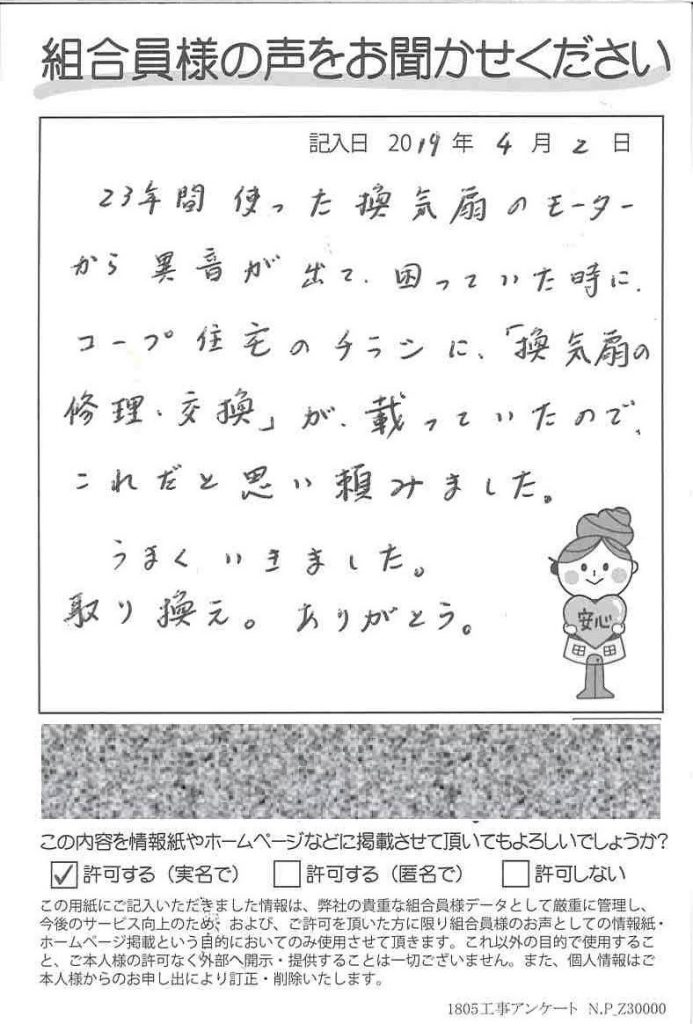 組合員様の声をお聞かせください
記入日 2019年 4月 2日
23年間使った換気扇のモーター
から異音が出て、困っていた時に、
コープ住宅のチラシに、「換気扇の
修理・交換」が、載っていたので、
これだと思い頼みました。
うまくいきました。
取り換え。ありがとう。
安心
この内容を情報紙やホームページなどに掲載させて頂いてもよろしいでしょうか?
☑許可する(実名で) □許可する(匿名で) □許可しない
この用紙にご記入いただきました情報は、弊社の貴重な組合員様データとして厳重に管理し、
今後のサービス向上のため、および、ご許可を頂いた方に限り組合員様のお声としての情報紙・
ホームページ掲載という目的においてのみ使用させて頂きます。これ以外の目的で使用するこ
と、ご本人様の許可なく外部へ開示・提供することは一切ございません。また、個人情報はご
本人様からのお申し出により訂正・削除いたします。
1805工事アンケート N.P_Z30000